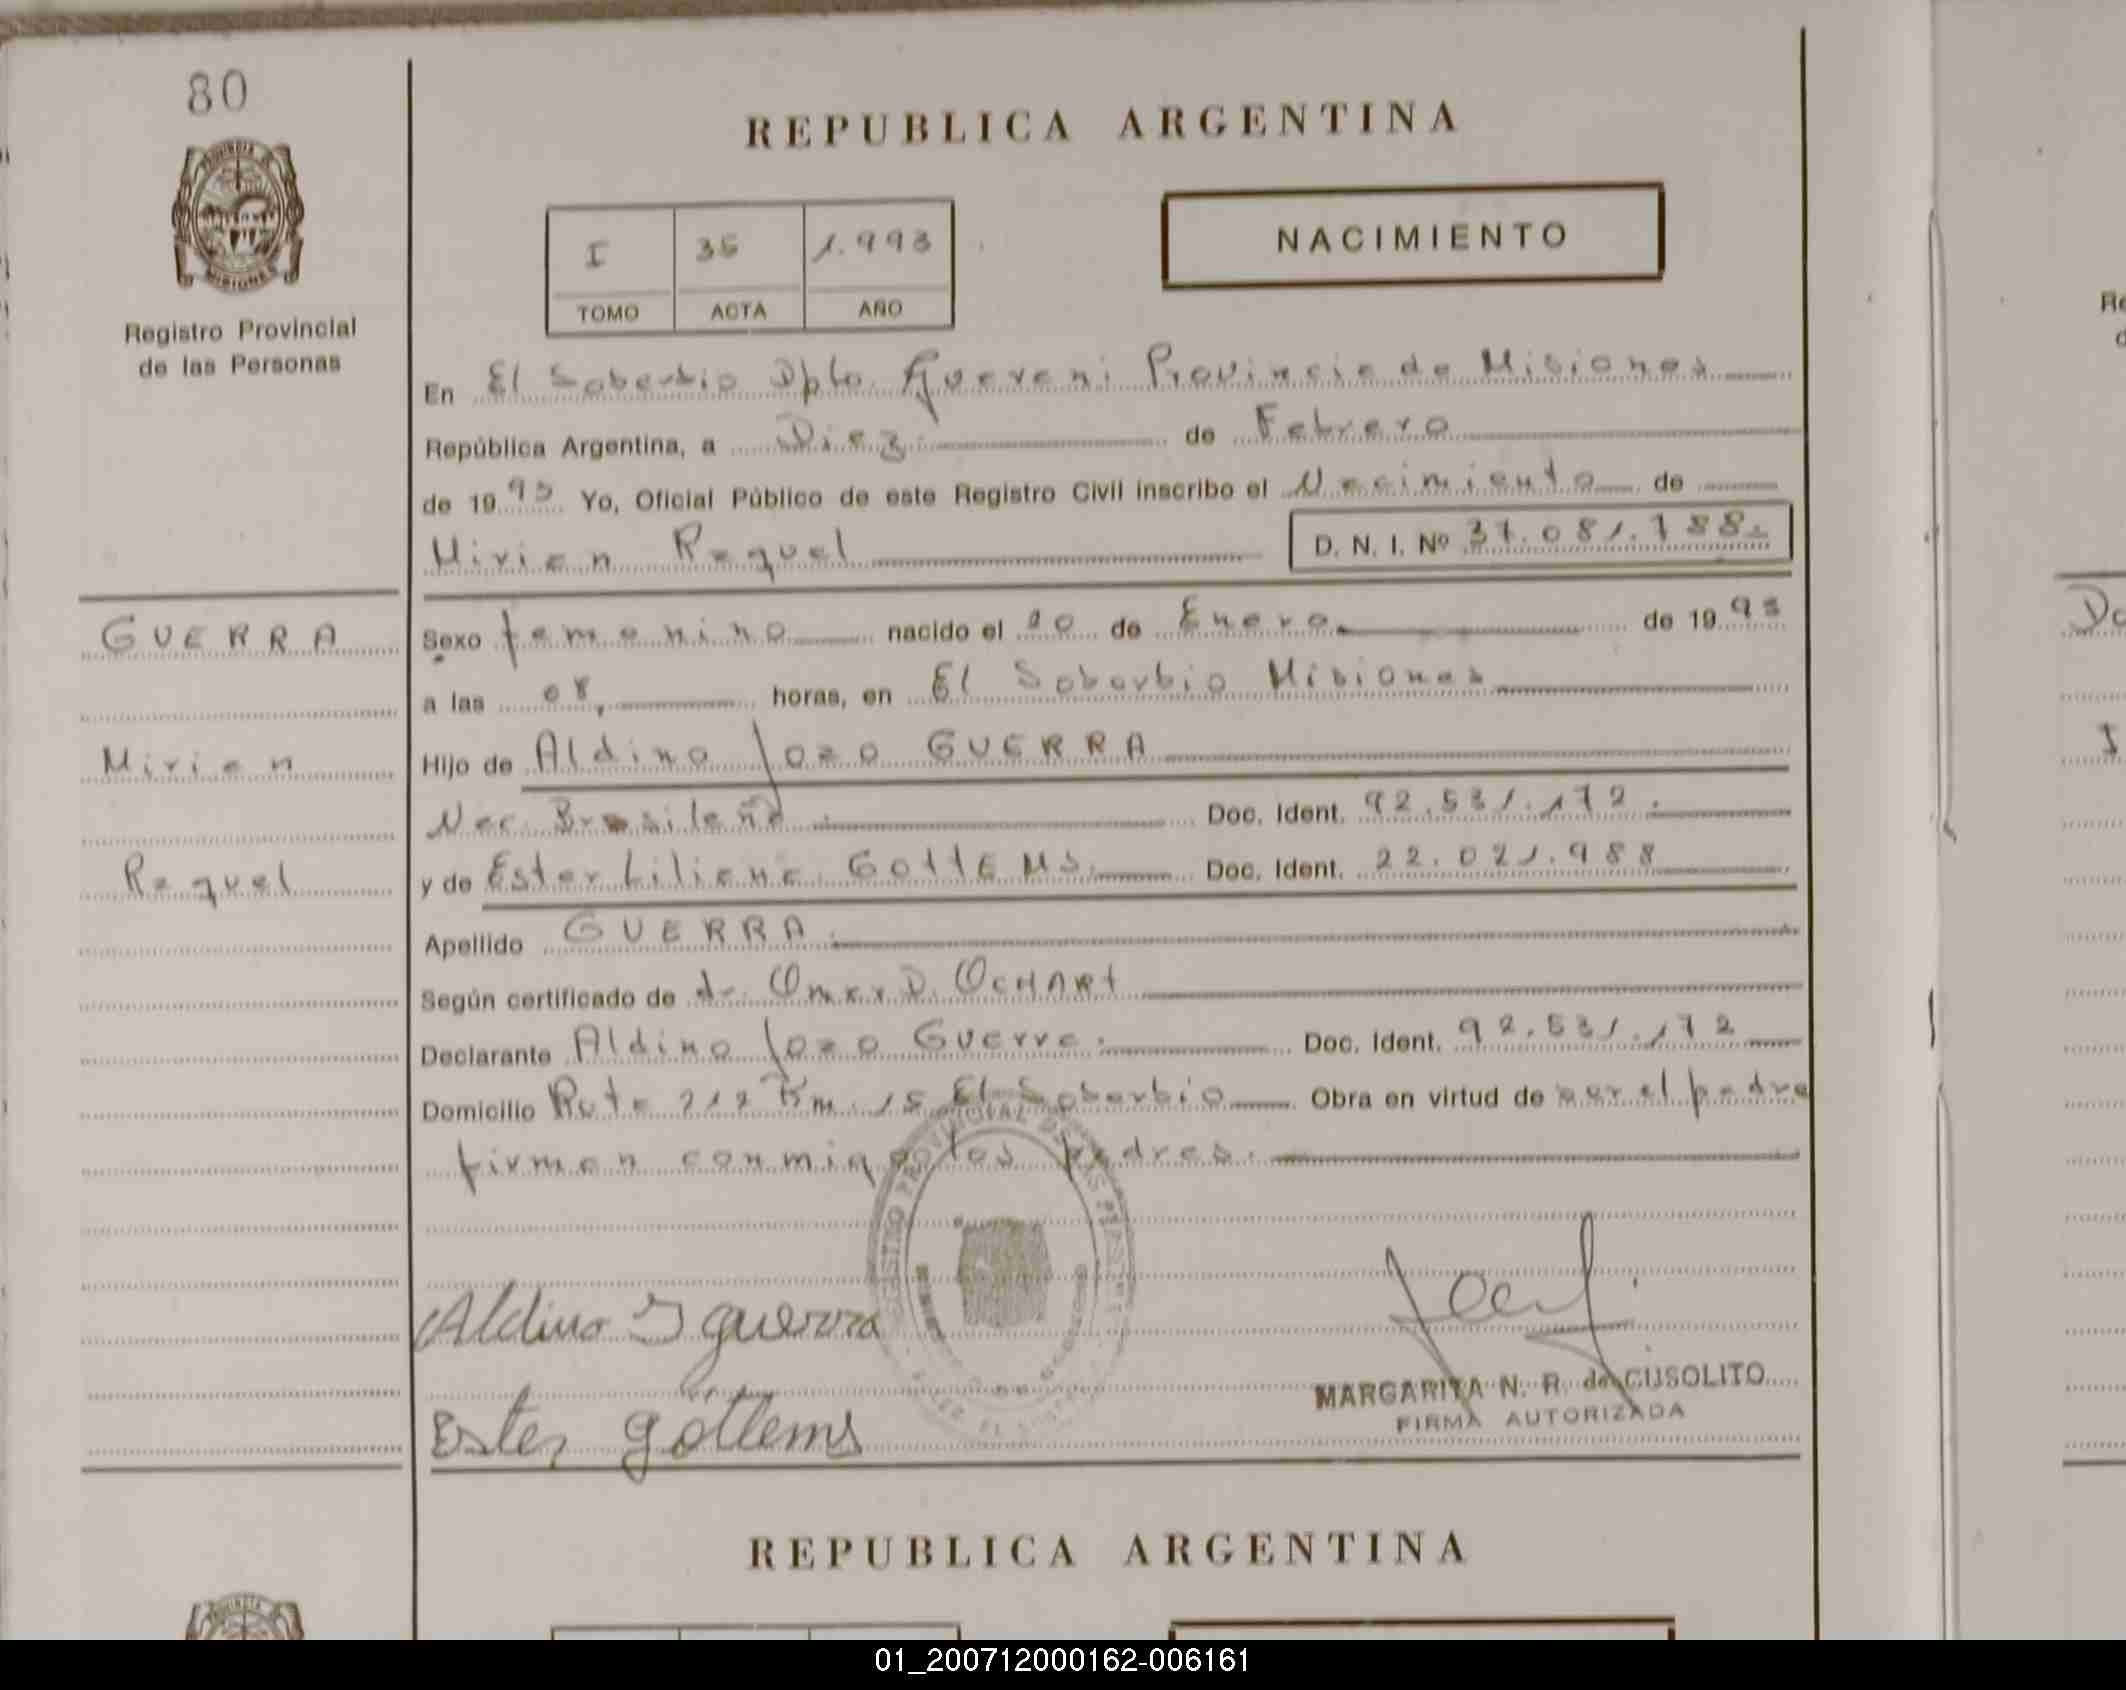 80
REPUBLICA ARGENTINA
I 35 1.993
TOMO ACTA AÑO
NACIMIENTO
Registro Provincial
de las Personas
En El Soberbio Dpto. Guarani Provincia de Misiones
República Argentina, a Diez de Febrero
de 1993 Yo, Oficial Público de este Registro Civil inscribo el Nacimiento de
Mirian Raquel D. N. I. Nº 37.081.788.
GUERRA
Sexo femenino nacido el 20 de Enero de 1993
a las 08, horas, en El Soberbio Misiones
Mirian
Hijo de Aldino Jozo GUERRA
Nac. Brasileña. Doc. Ident. 92.531.172.
Raquel
y de Ester Liliana GottEMS. Doc. Ident. 22.021.988
Apellido GUERRA.
Según certificado de dr. Omar D. OCHARt
Declarante Aldino Jozo Guerra. Doc. Ident. 92.531.172
Domicilio Ruta 212 Km. 15 El Soberbio Obra en virtud de ser el padre
firman conmigo los padres.
REGISTRO PROVINCIAL DE LAS PERSONAS
Aldino J guerra
Ester göttems
MARGARITA N. R. de CUSOLITO
FIRMA AUTORIZADA
REPUBLICA ARGENTINA
01_200712000162-006161